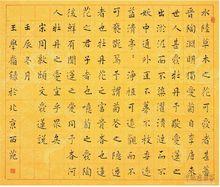 水陸草木之花可愛者甚蕃
晉陶淵明獨愛菊自李唐來
世人甚愛牡丹予獨愛蓮之
出淤泥而不染濯清漣而不
妖中通外直不蔓不枝香遠
益清亭亭淨植可遠觀而不
可褻翫焉予謂菊花之隱逸
者也牡丹花之富貴者也蓮
花之君子者也噫菊之愛陶
後鮮有聞蓮之愛同予者何
人牡丹之愛宜乎眾矣
宋周敦頤文愛蓮說
壬辰冬月
王摩嶺錄於北京西苑